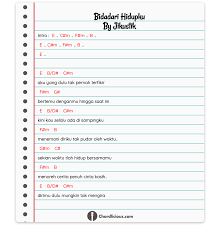 Bidadari Hidupku
By Jikustik
Intro : E .. C#m .. F#m .. B ..
E .. C#m .. F#m .. B ..
E ..
E B/D# C#m
aku yang dulu tak pernah terfikir
F#m G#
bertemu denganmu hingga saat ini
E B/D# C#m
kini kau selalu ada di sampingku
F#m B
menemani diriku tak pudar oleh waktu..
C#m G#
sekian waktu tlah hidup bersamamu
F#m B
menoreh cerita penuh cinta kasih..
E B/D# C#m
dirimu dulu mungkin tak mengira
Chordlicious.com